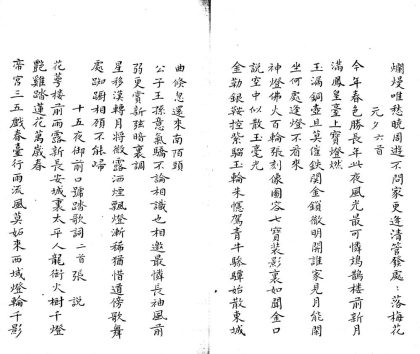 爛熳唯愁曉周遊不問家更逢清管發處〻落梅花
元夕六首
今年春色勝長年此夜風光最可憐鳷鵲樓前新月
滿鳳皇臺上寶燈燃
玉漏銅壺且莫催鉄関金鎖徹明開誰家見月能閑
坐何處逢燈不看來
神燈佛火百輪張刻像圖容七寶裝影裏如聞金口
說空中似散玉毫光
金勒銀鞍控紫騮玉輪朱幰駕青牛驂驔始散東城
曲倏忽還來南陌頭
公子王孫意氣驕不論相識也相邀最憐長袖風前
弱更賞新弦暗裏調
星移漢轉月將微露洒煙飄燈漸稀猶惜道傍歌舞
處踟躕相顧不能歸
十五夜御前口號踏歌詞二首張說
花萼樓前雨露新長安城裏太平人龍銜火樹千燈
艶雞踏蓮花萬歲春
帝宮三五戲春臺行雨流風莫妬來西域燈輪千影